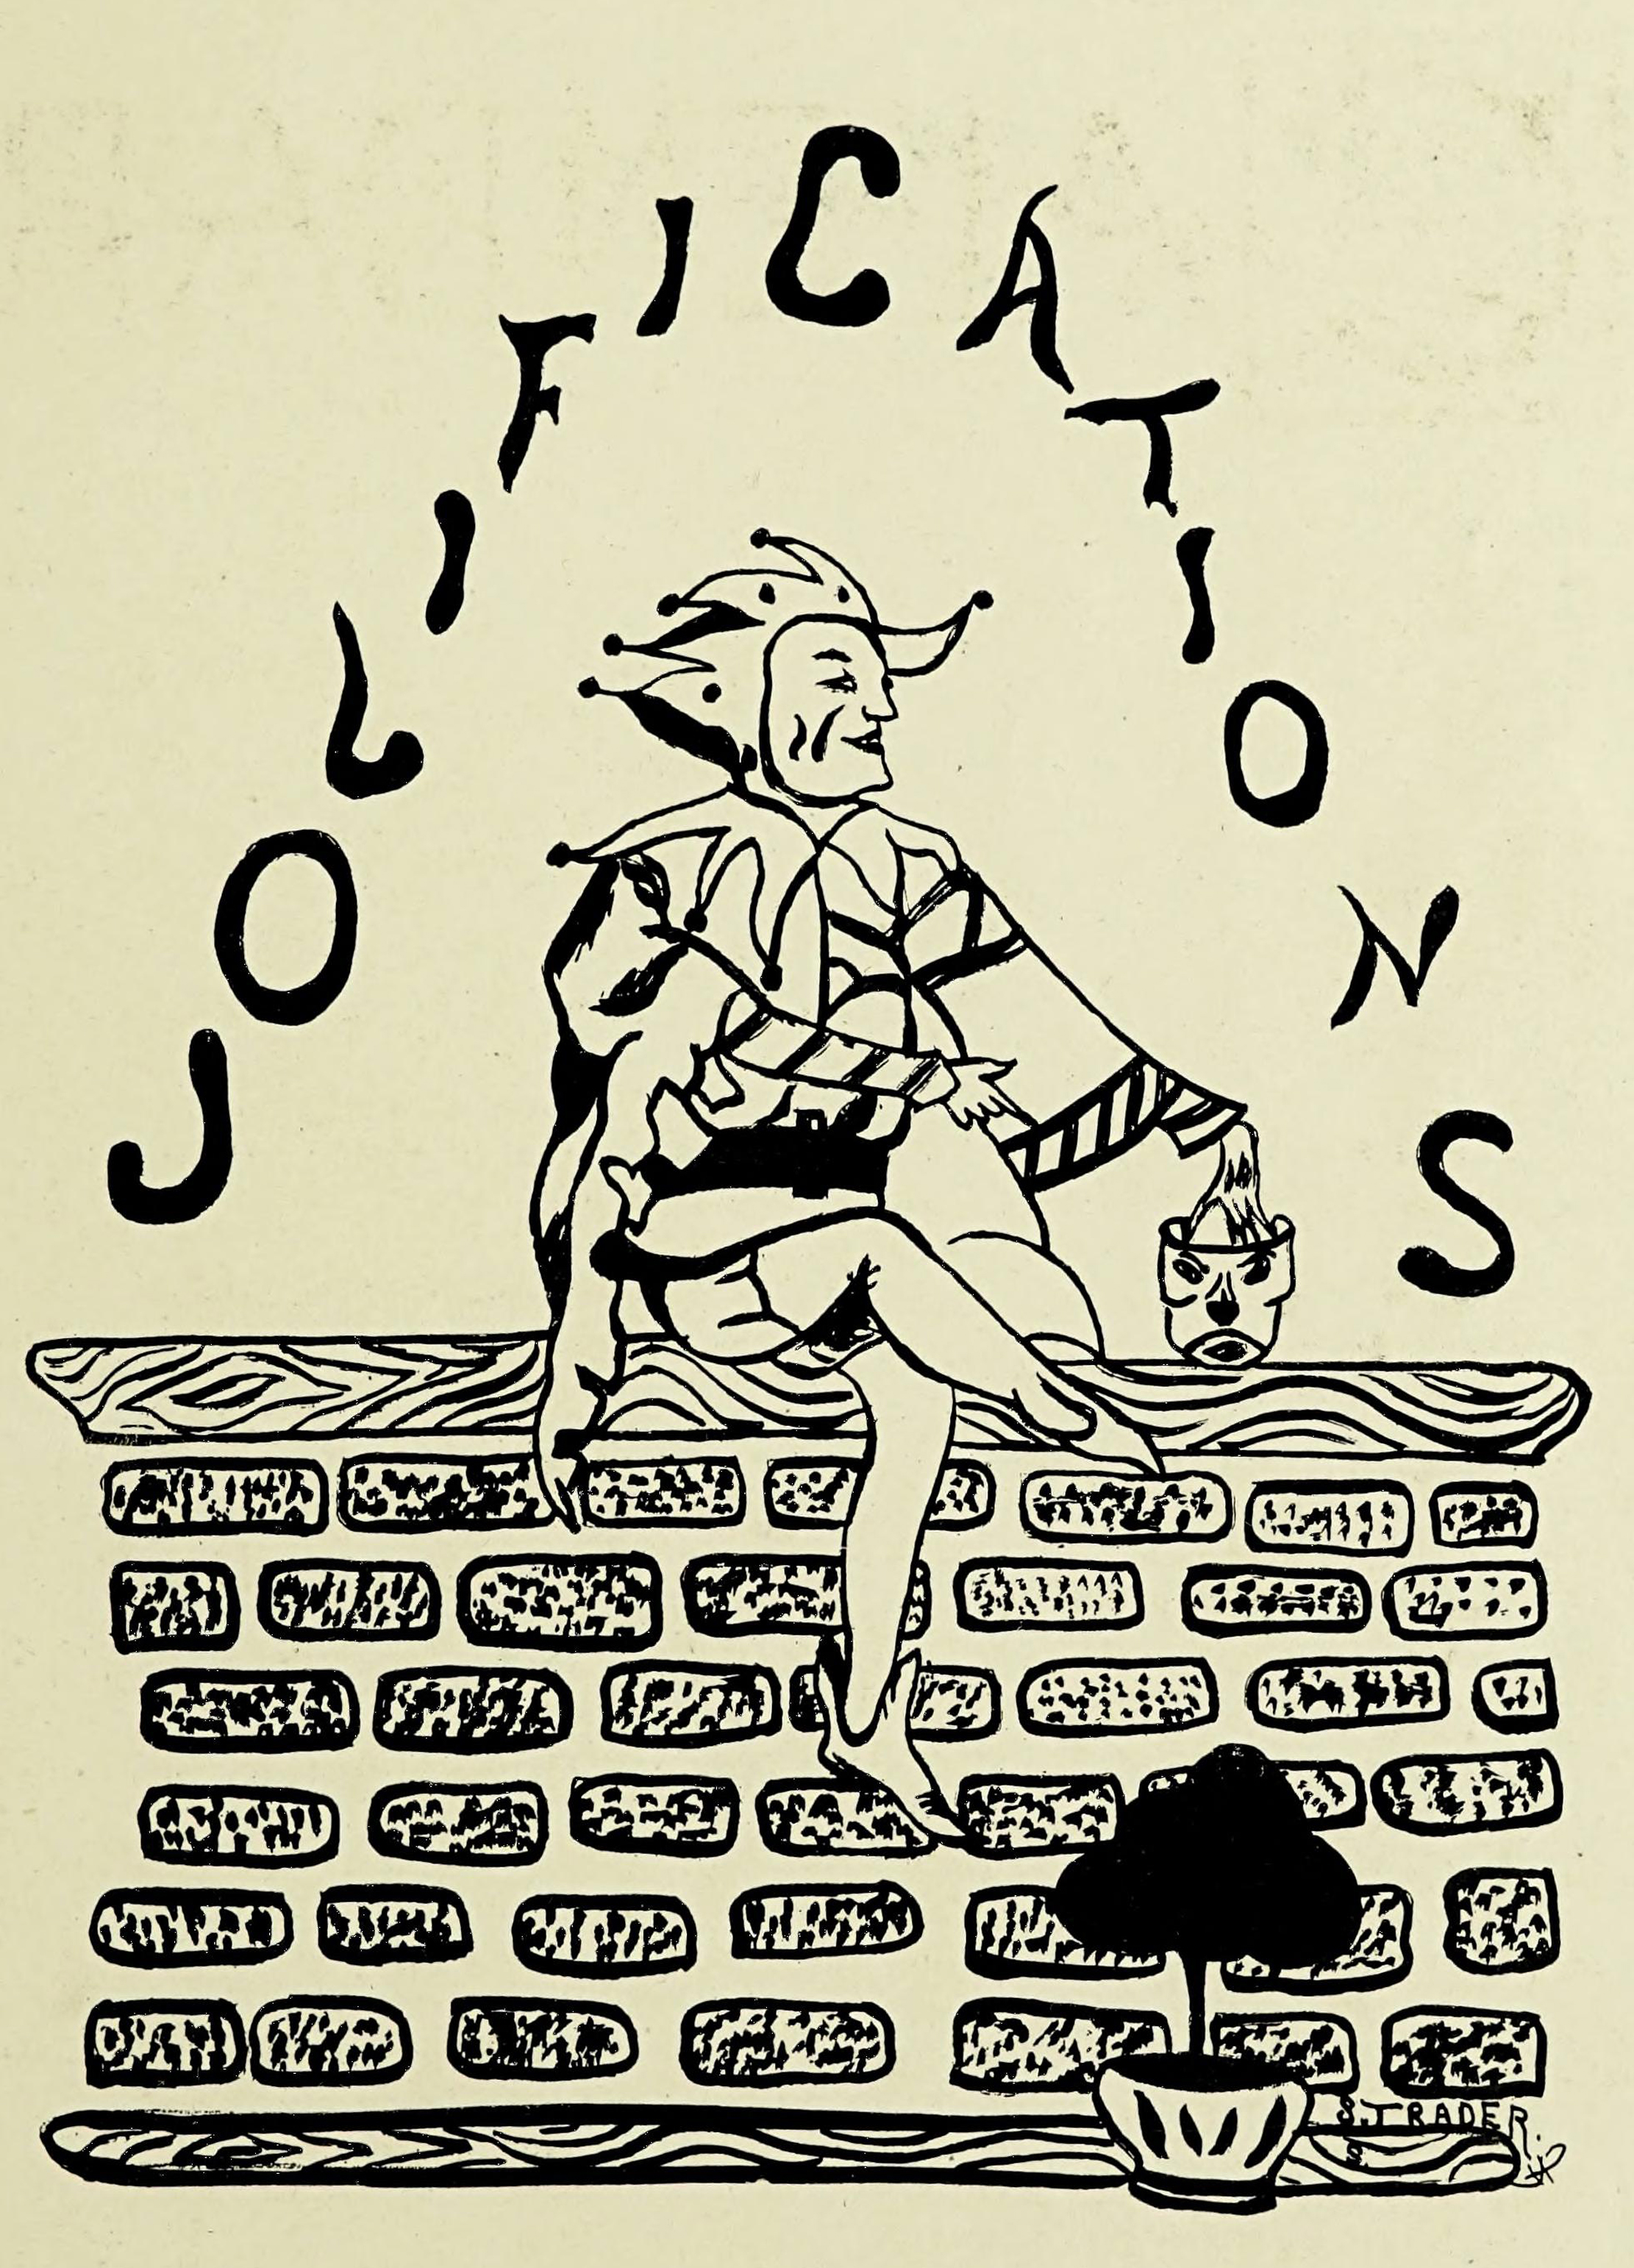 JOLIFICATIONS
S.TRADER.